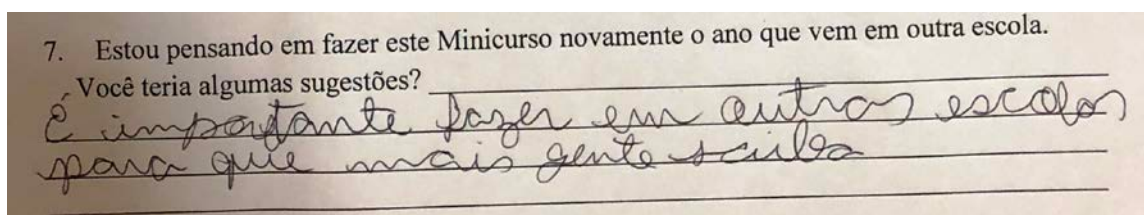 7. Estou pensando em fazer este Minicurso novamente o ano que vem em outra escola.
Você teria algumas sugestões?
É importante fazer em outras escolas
para que mais gente saiba